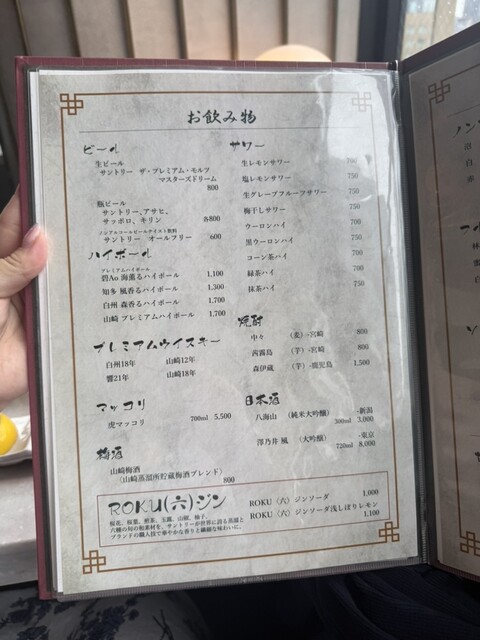 お飲み物
ビール
生ビール
サントリー ザ・プレミアム・モルツ
マスターズドリーム
800
瓶ビール
サントリー、アサヒ、
サッポロ、キリン 各800
ノンアルコールビールテイスト飲料
サントリー オールフリー 600
ハイボール
プレミアムハイボール
碧Ao 海薫るハイボール 1,100
知多 風香るハイボール 1,300
白州 森香るハイボール 1,700
山崎 プレミアムハイボール 1,700
プレミアムウイスキー
白州18年 山崎12年
響21年 山崎18年
マッコリ
虎マッコリ 700ml 5,500
梅酒
山崎梅酒
〈山崎蒸溜所貯蔵梅酒ブレンド〉
800
サワー
生レモンサワー 700
塩レモンサワー 750
生グレープフルーツサワー 750
梅干しサワー 750
ウーロンハイ 700
黒ウーロンハイ 750
コーン茶ハイ 700
緑茶ハイ 700
抹茶ハイ 750
焼酎
中々 (麦)-宮崎 800
茜霧島 (芋)-宮崎 800
森伊蔵 (芋)-鹿児島 1,500
日本酒
八海山 (純米大吟醸) -新潟
300ml 3,000
澤乃井 凰 (大吟醸) -東京
720ml 8,000
ROKU〈六〉ジン
桜花、桜葉、煎茶、玉露、山椒、柚子、
六種の旬の和素材を、サントリーが世界に誇る蒸溜と
ブレンドの職人技で華やかな香りと繊細な味わいに。
ROKU〈六〉ジンソーダ 1,000
ROKU〈六〉ジンソーダ浅しぼりレモン
1,100